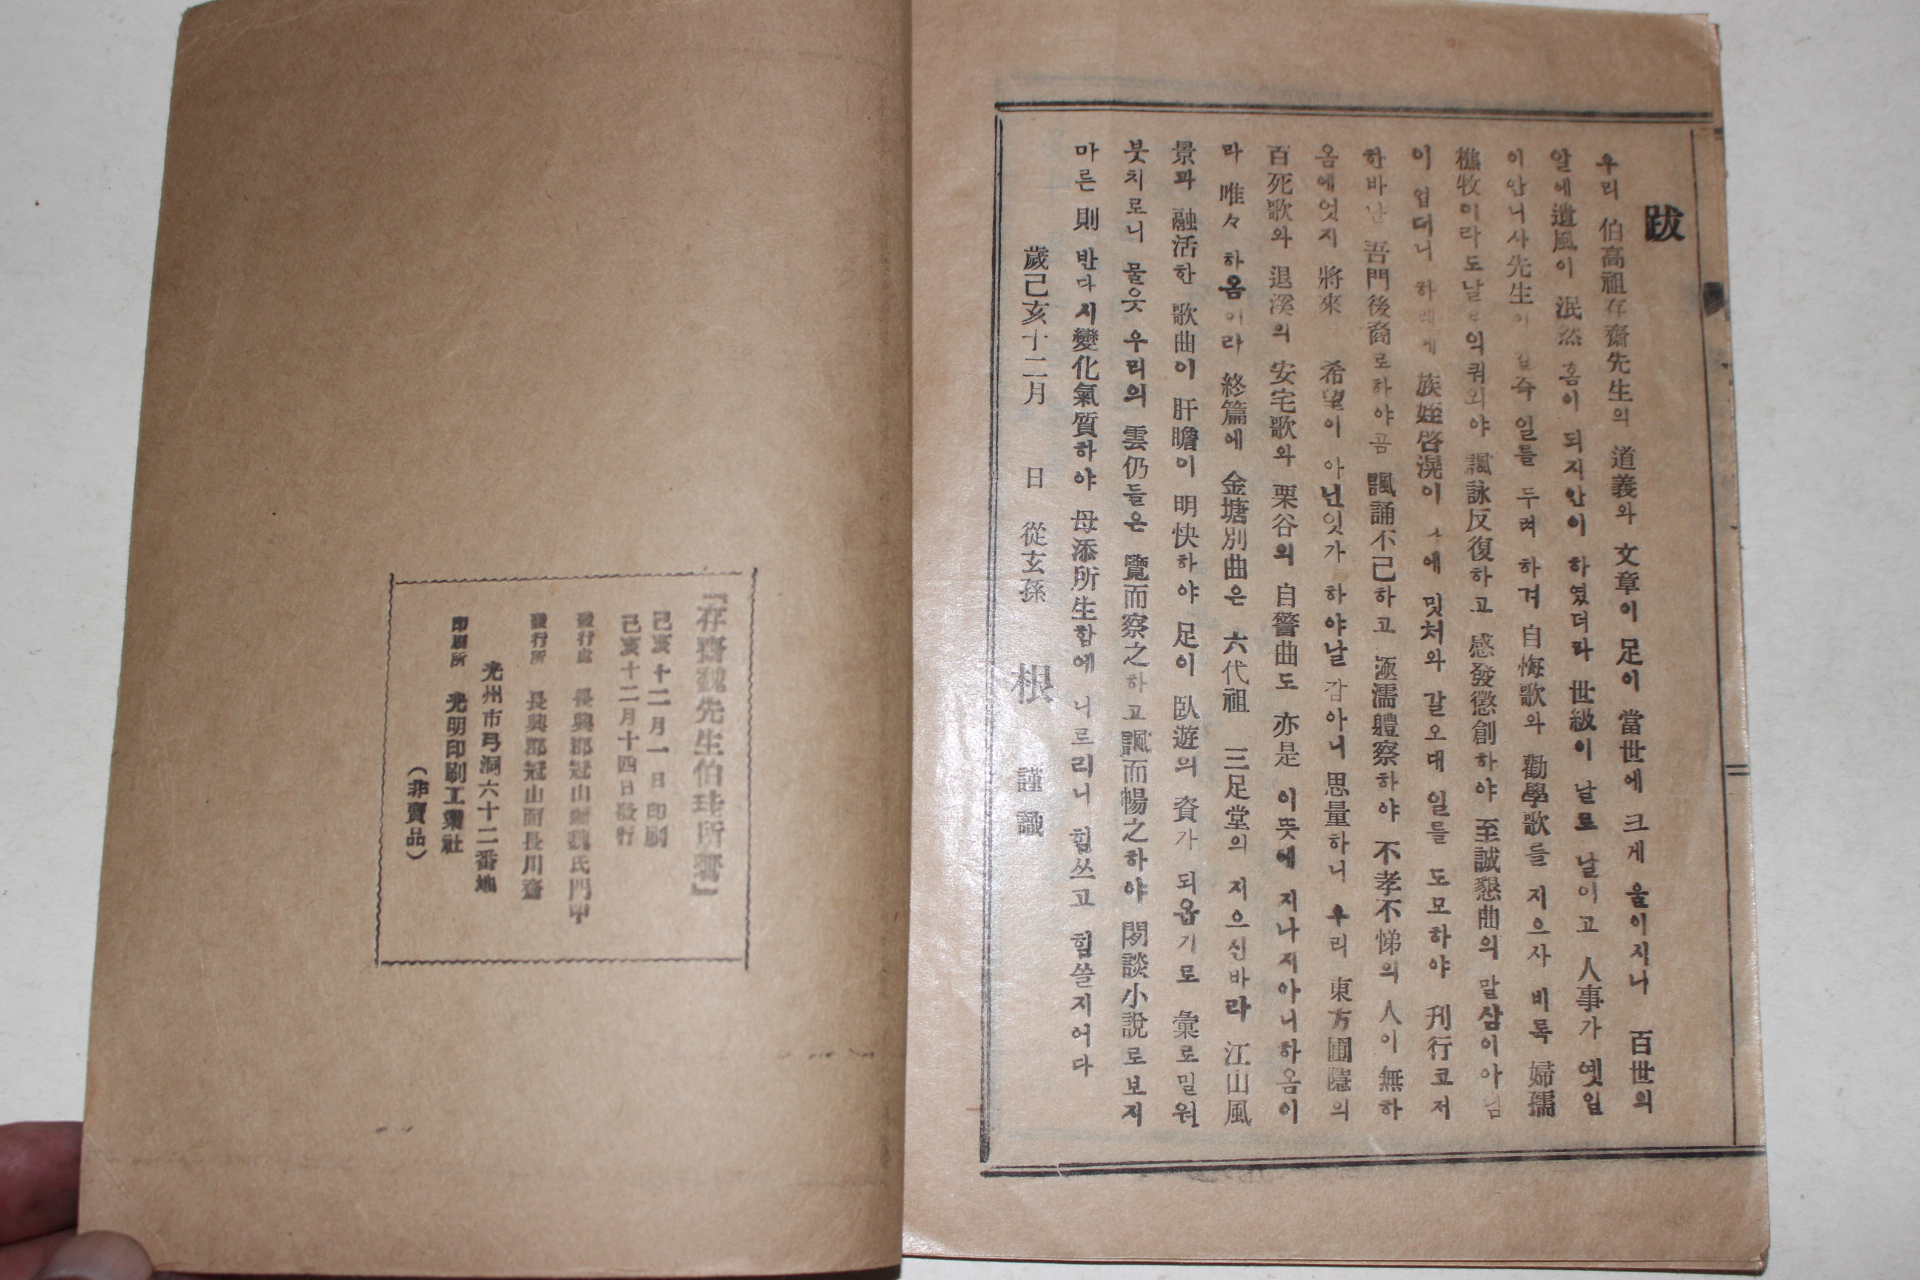 跋
우리 伯高祖存齋先生의 道義와 文章이 足이 當世에 크게 울이지니 百世의
알에遺風이 泯然홈이 되지안이 하엿더라 世級이 날로 날이고 人事가 옛일
이안니사先生이 일즉 일들 두려 하겨 自悔歌와 勸學歌들 지으사 비록 婦孺
樵牧이라도날 익쿼외야 諷詠反復하고 感發懲創하야 至誠懇曲의 말삼이아님
이 업더니 하레 族姪啓滉이 에 밋처와 갈오대 일들 도모하야 刊行코저
한바난 吾門後裔로하야곰 諷誦不已하고 涵濡軆察하야 不孝不悌의 人이 無하
옴에엇지 將來 希望이 아닌잇가 하야날 감아니 思量하니 우리 東方圃隱의
百死歌와 退溪의 安宅歌와 栗谷의 自警曲도 亦是 이뜻에 지나지아니하옴이
라 唯々 하옴이라 終篇에 金塘別曲은 六代祖 三足堂의 지으신바라 江山風
景과 融活한 歌曲이 肝膽이 明快하야 足이 臥遊의 資가 되옵기로 彙로밀원
붓치로니 물읏 우리의 雲仍들은 覽而察之하고 諷而暢之하야 閑談小說로보지
마른 則 반다시變化氣質하야 母忝所生함에 니르리니 힘쓰고 힘쓸지어다
歲己亥十二月 日 從玄孫 根 謹識
「存齋魏先生伯珪所著」
己亥十二月一日印刷
己亥十二月十四日發行
發行處 長興郡冠山面魏氏門中
發行所 長興郡冠山面長川齋
光州市弓洞六十二番地
印刷所 光明印刷工業社
(非賣品)